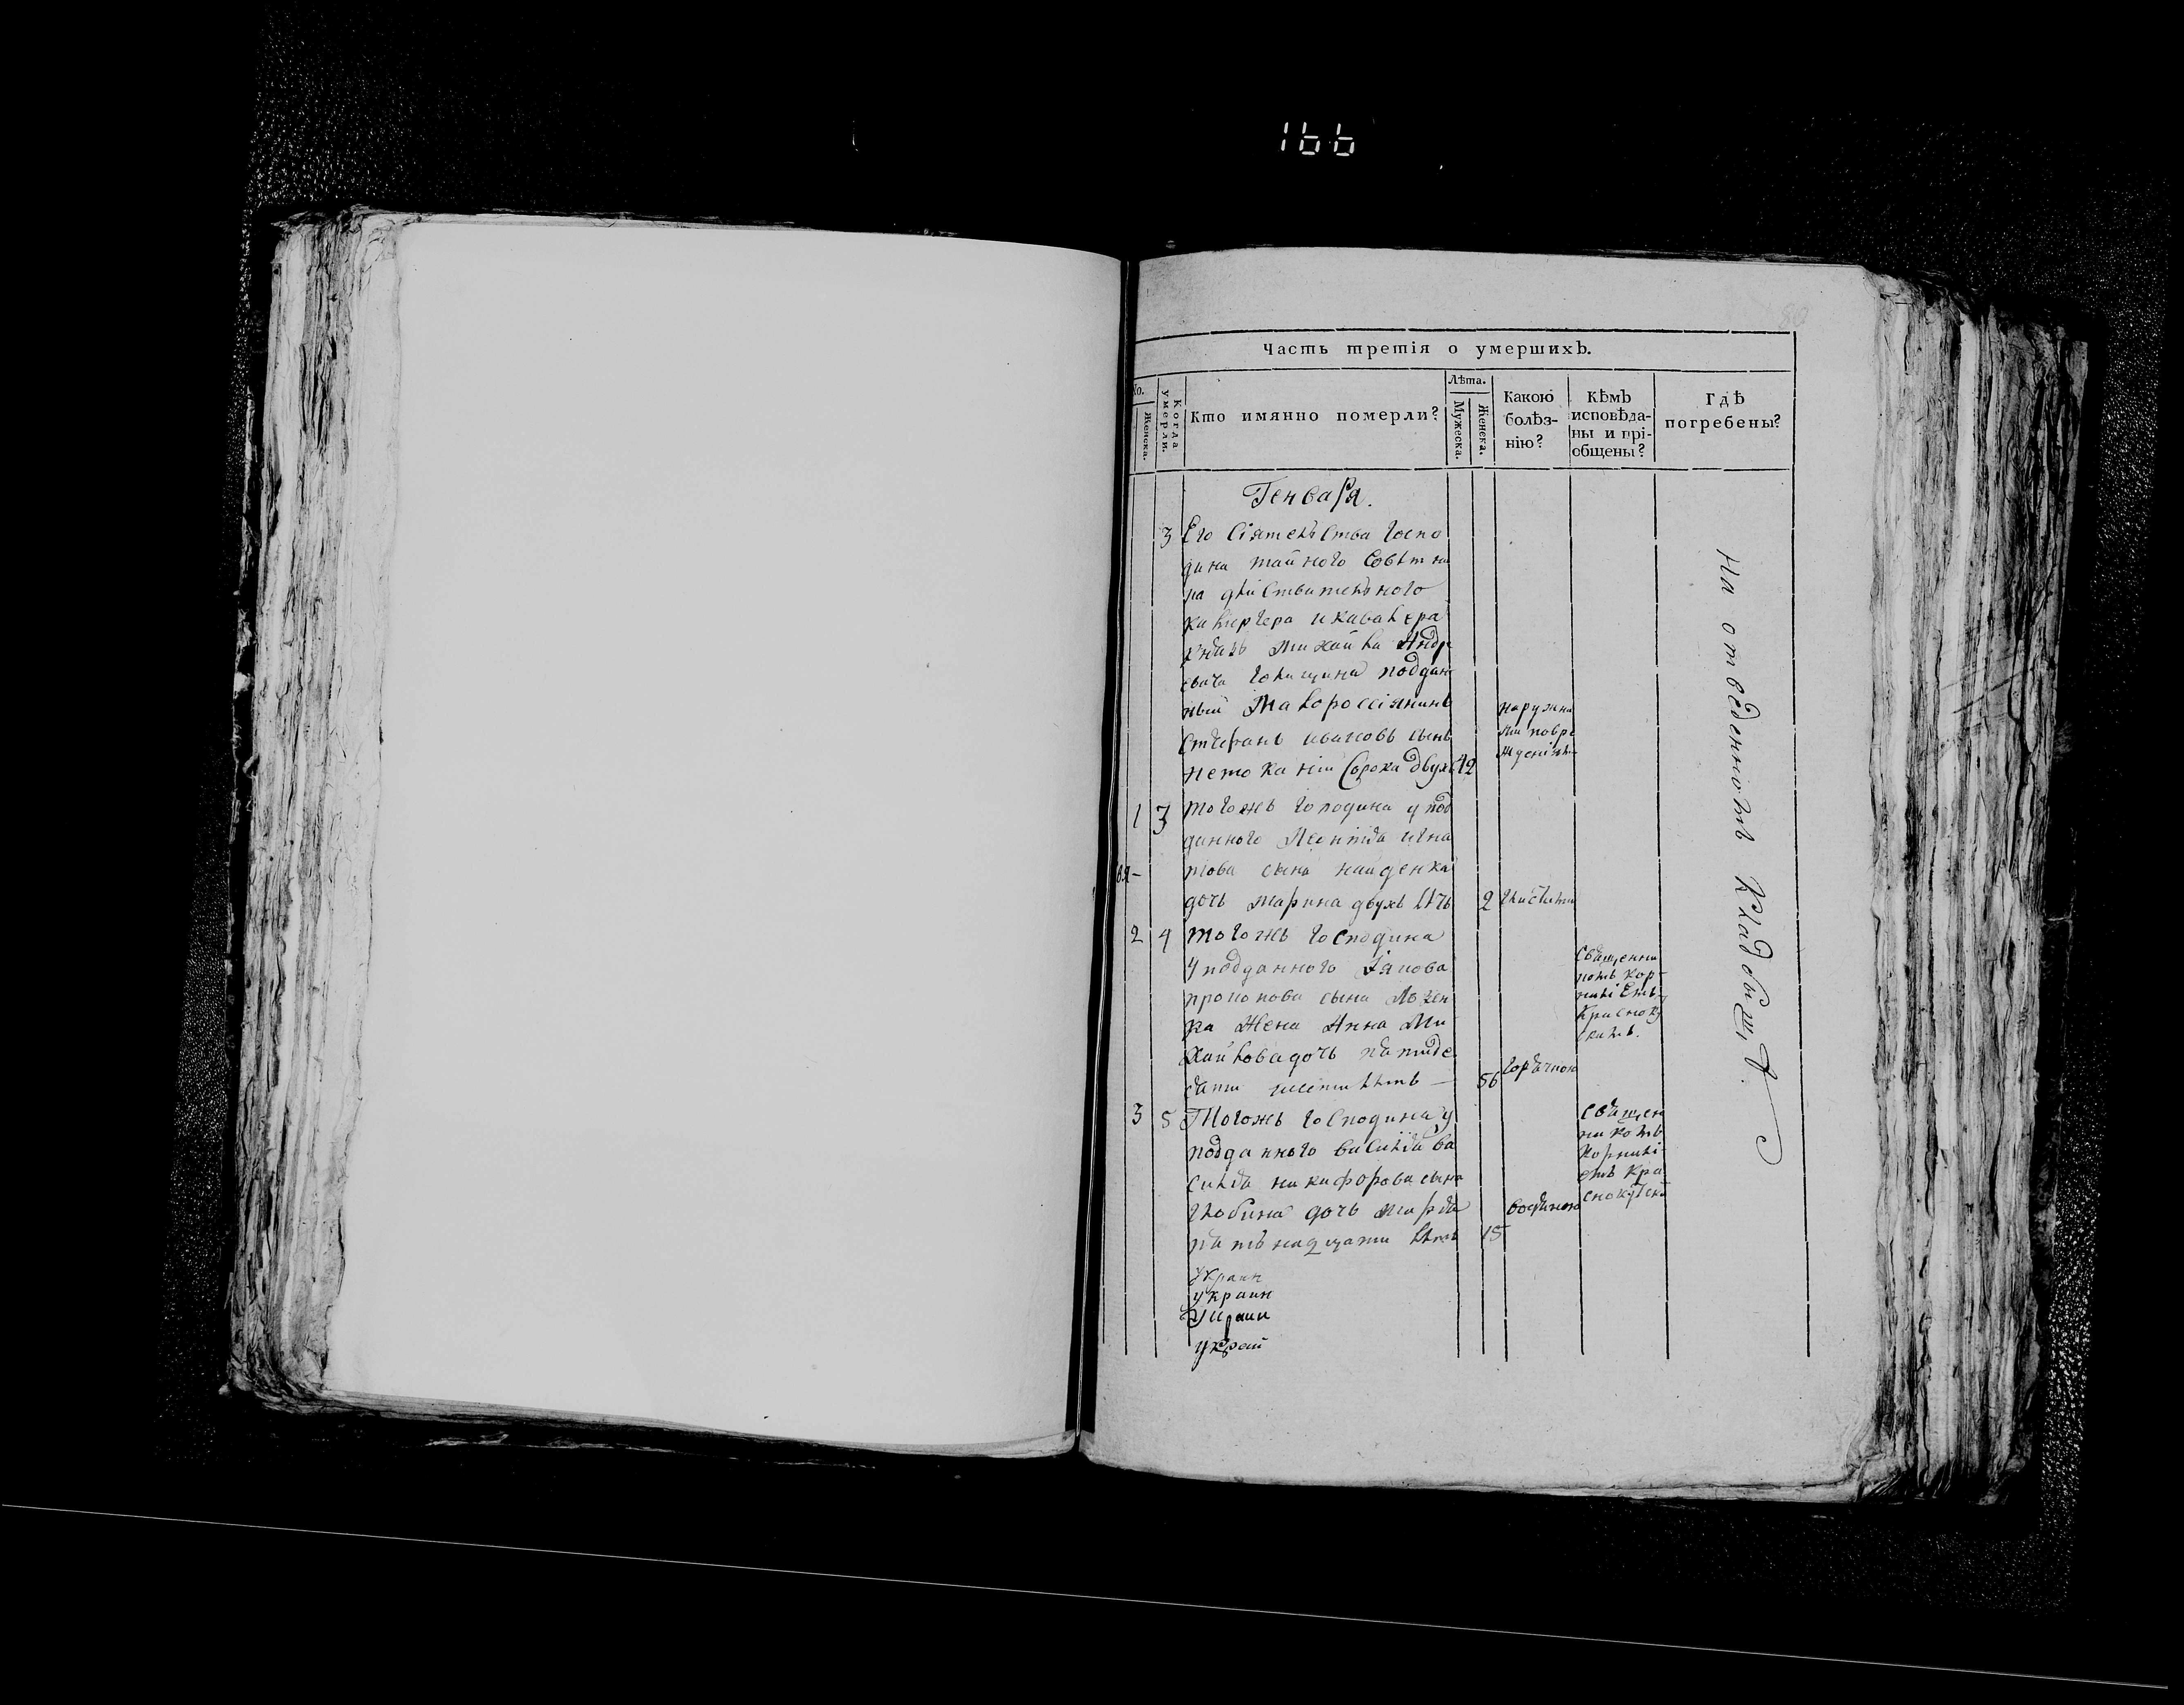 166
Часть третія о умершихъ.
Женска.
Когда умерли.
Кто имянно померли?
Лѣта.
Мужеска.
Женска.
Какою болѣз-
нію?
Кѣмъ
исповѣда-
ны и прі-
общены?
гдѣ
погребены?
Генваря.
3 Его Сіятелства Госпо
дина тайного Совѣтни
ка дѣйствителного
камергера и кавалера
князь михаила Андре
евича голицина поддан
ный Малороссіянинъ
Стефанъ ивановъ сынъ
сорока двухъ 42
наружни
ми повре
жденіями
1 3 тогожъ господина у под
данного Леонтія игна
това сына найденка
дочь марина двухъ лѣтъ 2 глистами
2 4 тогожъ господина
у подданного Іякова
прокопова сына
жена Анна Ми
хайлова дочь пятиде
сяти шести лѣтъ — 56 горячкою
Священни
комъ Кор
ниліемъ
Краснокут
скимъ.
3 5 Тогожъ господина у
подданного василія ва
силія никифорова сына
дочь марія
пятьнадцати лѣтъ 15
Священ
никомъ
Корнилі
емъ Кра
снокутски
украин
украин
Украин
украй
На отведенномъ Кладбищѣ.